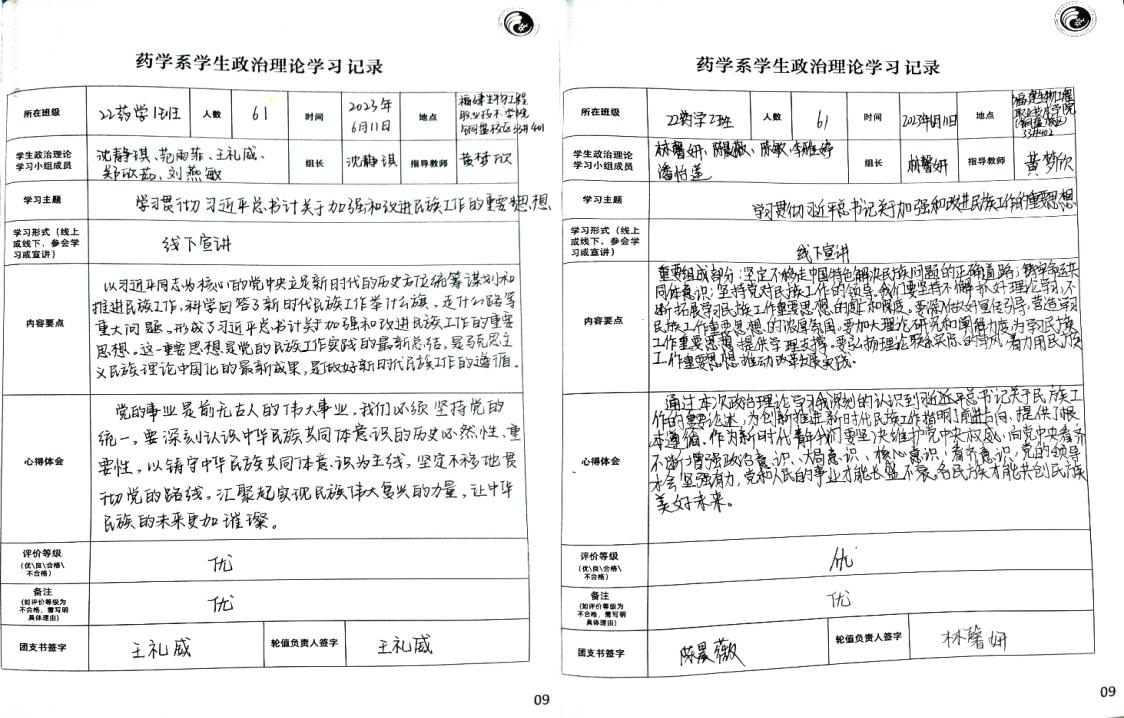 药学系学生政治理论学习记录
所在班级 22药学1班 人数 61 时间 2023年6月11日 地点 福建生物工程职业技术学院
学生政治理论学习小组成员 沈静琪、范雨菲、王礼威、郑欣茹、刘燕敏 组长 沈静琪 指导教师 黄梦欣
学习主题 学习贯彻习近平总书计关于加强和改进民族工作的重要思想
学习形式（线上或线下，参会学习或宣讲） 线下宣讲
内容要点
以习近平同志为核心的党中央立足新时代的历史方位统筹谋划和
推进民族工作，科学回答了新时代民族工作举什么旗，走什么路等
重大问题，形成了习近平总书计关于加强和改进民族工作的重要
思想。这一重要思想是党的民族工作实践的最新总结，是马克思主
义民族理论中国化的最新成果，是做好新时代民族工作的遵循。
心得体会
党的事业是前无古人的伟大事业，我们必须坚持党的
统一，要深刻认识中华民族共同体意识的历史必然性、重
要性，以铸守中华民族共同体意识为主线，坚定不移地贯
彻党的路线，汇聚起实现民族伟大复兴的力量，让中华
民族的未来更加璀璨。
评价等级（优\良\合格\不合格） 优
备注（如评价等级为不合格，需写明具体理由） 优
团支书签字 王礼威 轮值负责人签字 王礼威
09
药学系学生政治理论学习记录
所在班级 22药学2班 人数 61 时间 2023年6月11日 地点 福建生物工程职业技术学院
学生政治理论学习小组成员 林馨妍、陈晨薇、陈敏、潘怡莲 组长 林馨妍 指导教师 黄梦欣
学习主题 学习贯彻习近平总书记关于加强和改进民族工作的重要思想
学习形式（线上或线下，参会学习或宣讲） 线下宣讲
内容要点
重要组成部分；坚定不移走中国特色解决民族问题的正确道路；
同体意识；坚持党对民族工作的领导。我们要坚持不懈抓好理论学习，不
断拓展学习民族工作重要思想的广度和深度。要深入做好宣传引导，营造学习
民族工作重要思想的浓厚氛围。要加大理论研究和阐释力度，为学习民族
工作重要思想提供学理支撑。要弘扬理论联系实际的学风，着力用民族
工作重要思想推动改革发展实践。
心得体会
通过本次政治理论学习我深刻的认识到习近平总书记关于民族工
作的重要论述，为创新推进新时代民族工作指明了前进方向，提供了根
本遵循。作为新时代青年我们要坚决维护党中央权威，向党中央看齐
不断增强政治意识、大局意识、核心意识、看齐意识，党的领导
才会坚强有力，党和人民的事业才能长盛不衰。各民族才能共创民族
美好未来。
评价等级（优\良\合格\不合格） 优
备注（如评价等级为不合格，需写明具体理由） 优
团支书签字 陈晨薇 轮值负责人签字 林馨妍
09